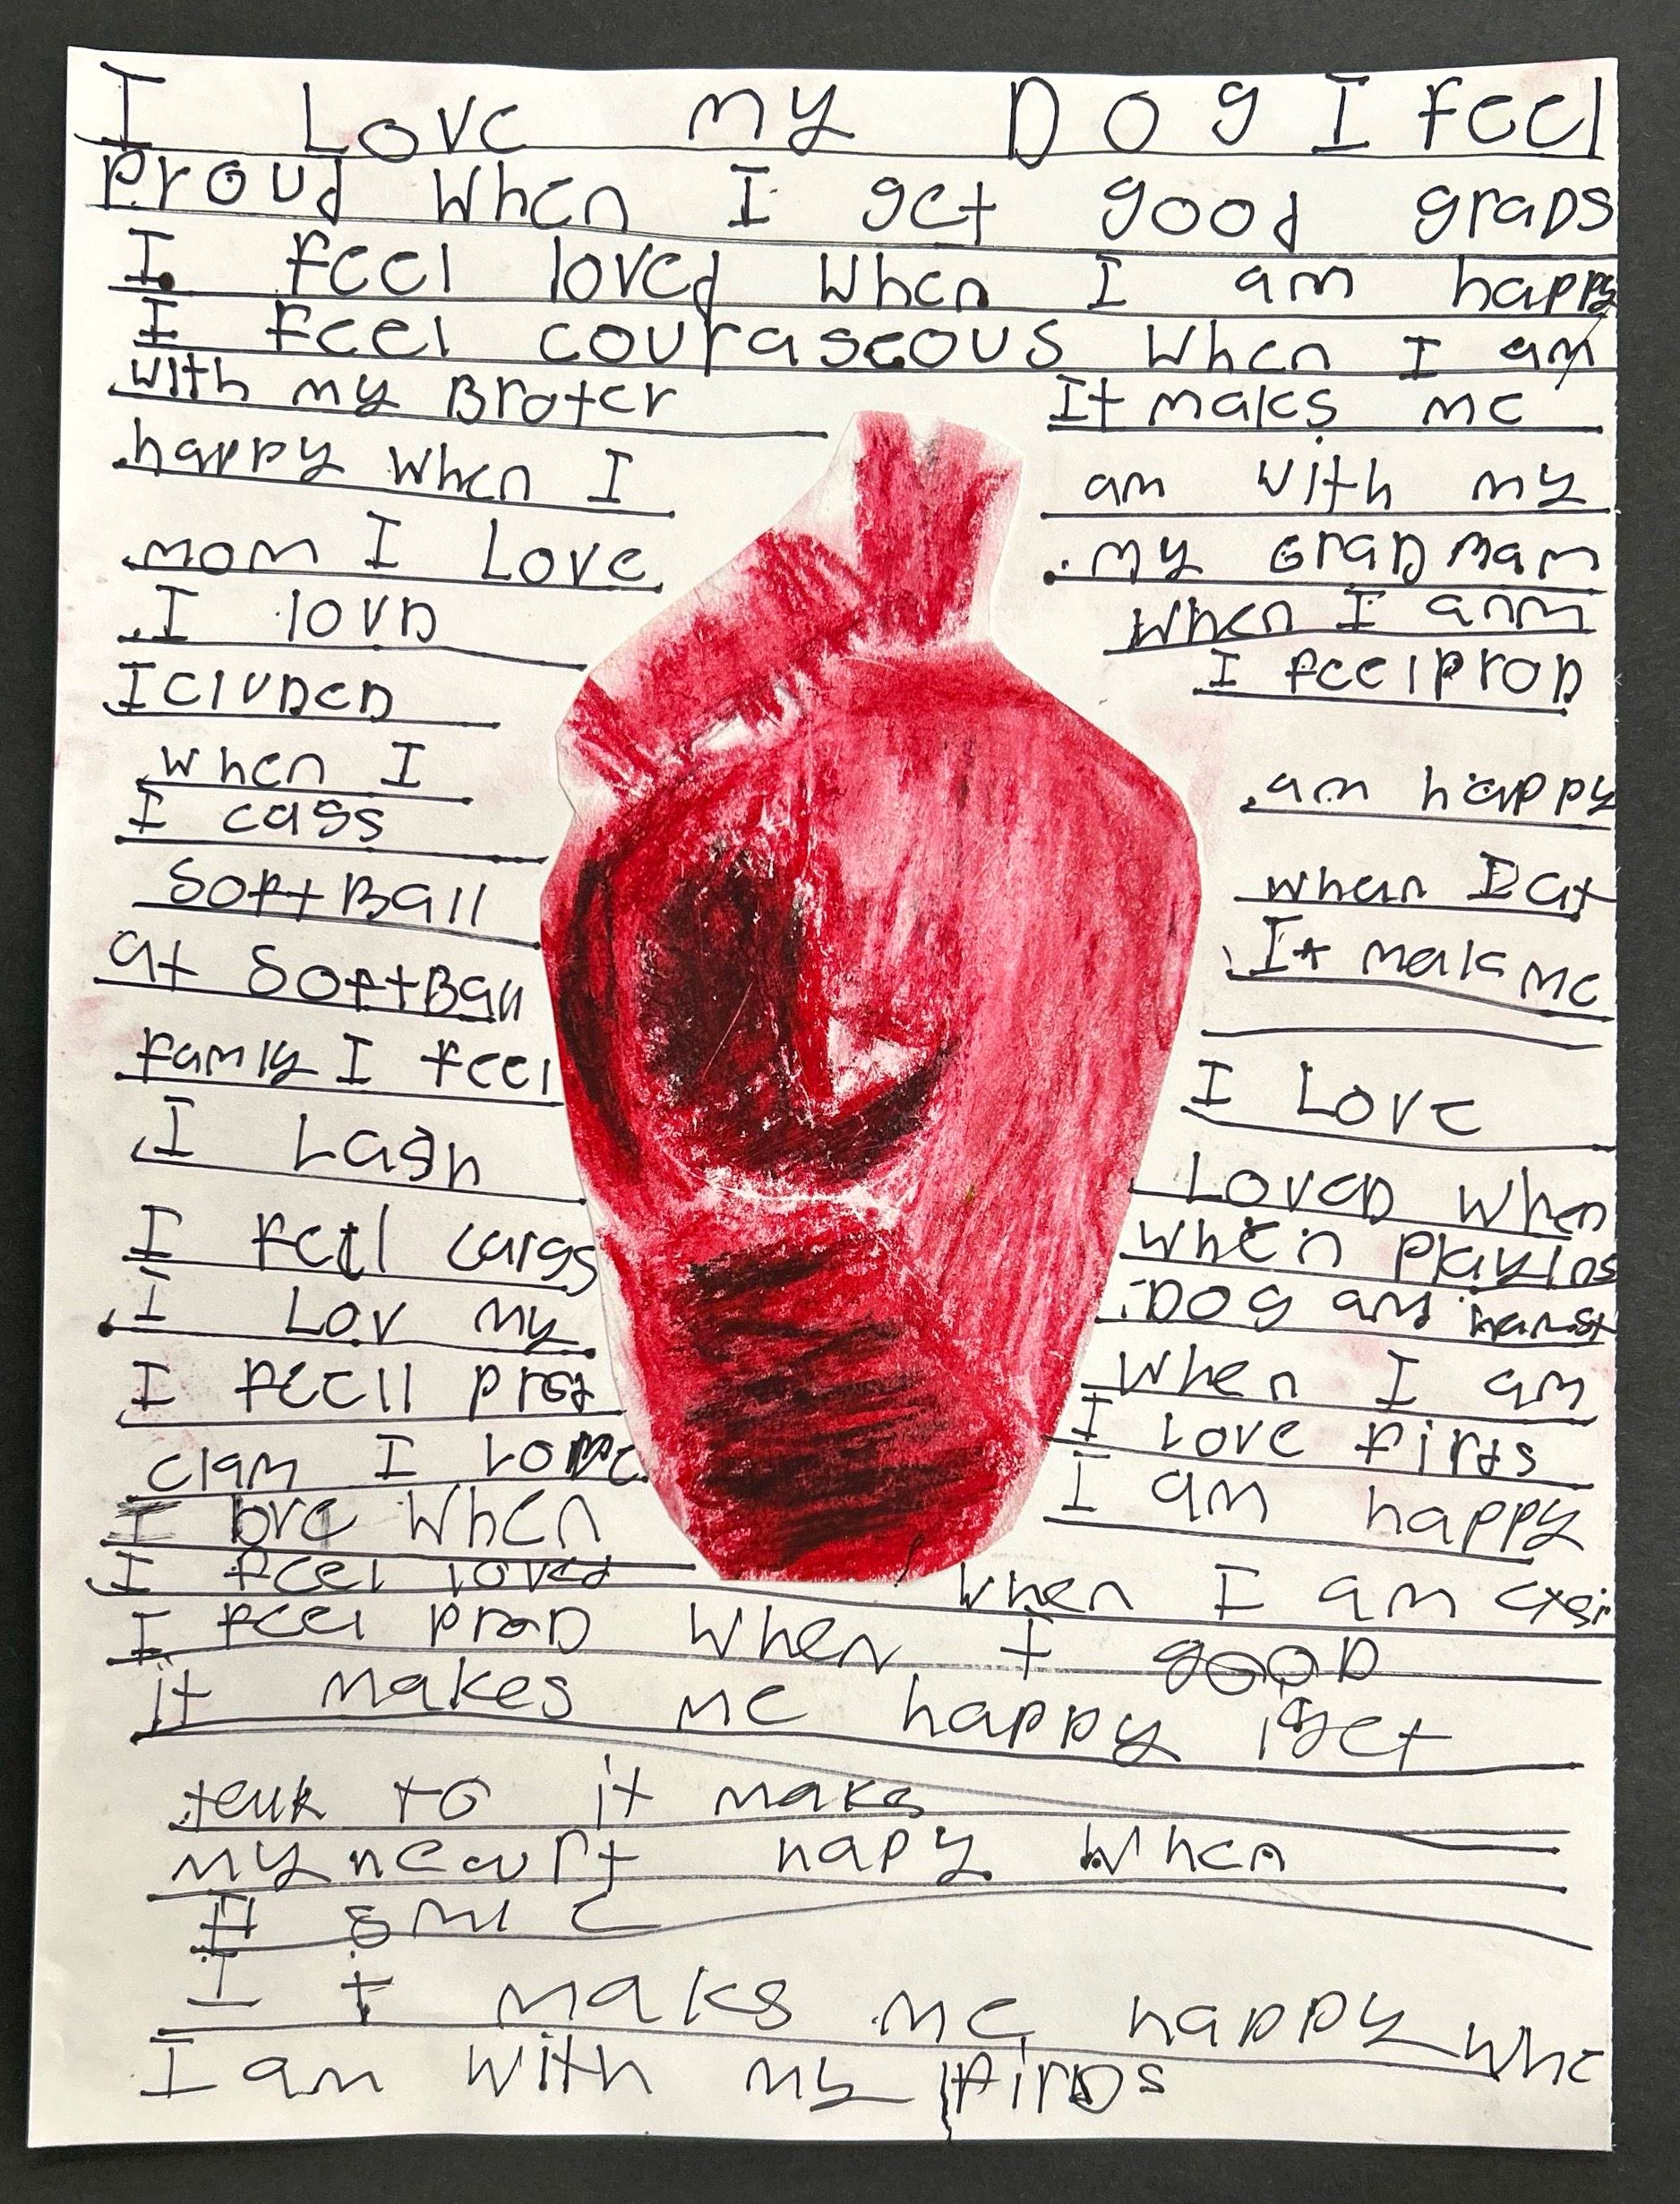 I Love my Dog I feel
Proud When I get good graDs
I feel loved When I am happy
I feel couraseous When I am
with my Broter It maks me
happy when I am with my
mom I Love my GranDmam
I lovD When I anm
IcluDeD I feel proD
when I am happy
I cass when I at
SoftBall It maks me
at SoftBall
famly I feel I Love
I Lagh LoveD when
I feel cargs when playins
I Lov my Dog am
I feell prod When I am
clam I Love I Love firds
I love When I am happy
I feel loved When I am
I feel proD When I gooD
it makes me happy iget
to it make
my heart hapy When
I smile
It maks me happy whe
I am with my firDs